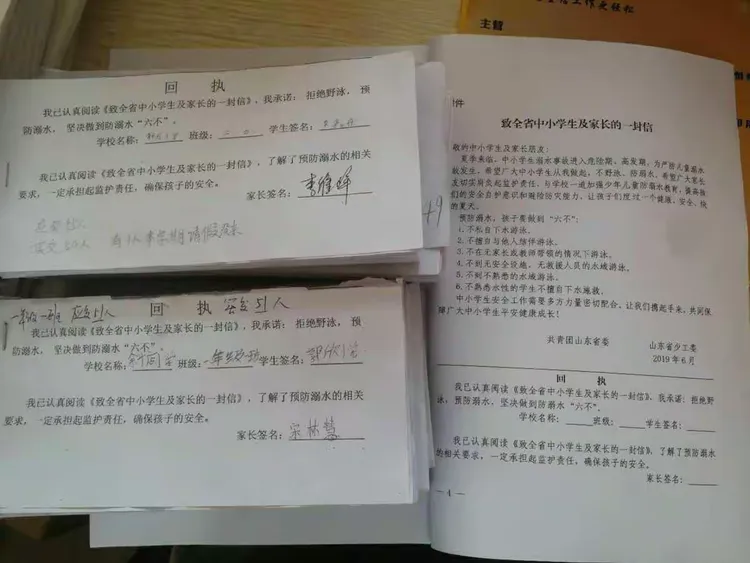 回 执
我已认真阅读《致全省中小学生及家长的一封信》，我承诺：拒绝野泳，预
防溺水，坚决做到防溺水“六不”。
学校名称： 班级： 学生签名：
我已认真阅读《致全省中小学生及家长的一封信》，了解了预防溺水的相关
要求，一定承担起监护责任，确保孩子的安全。
家长签名：
49
一年级一班 应交51人 回 执 实交51人
我已认真阅读《致全省中小学生及家长的一封信》，我承诺：拒绝野泳，预
防溺水，坚决做到防溺水“六不”。
学校名称： 班级： 学生签名：
我已认真阅读《致全省中小学生及家长的一封信》，了解了预防溺水的相关
要求，一定承担起监护责任，确保孩子的安全。
家长签名：宋林慧
主管
件
致全省中小学生及家长的一封信
敬的中小学生及家长朋友：
夏季来临，中小学生溺水事故进入危险期、高发期，为严防儿童溺水
故发生，希望广大中小学生从我做起，不野泳、防溺水，希望广大家长
友切实肩负起监护责任，与学校一道加强少年儿童防溺水教育，提高孩
们的安全自护意识和避险防灾能力，让孩子们度过一个健康、安全、快
的夏天。
预防溺水，孩子要做到“六不”：
1.不私自下水游泳。
2.不擅自与他人结伴游泳。
3.不在无家长或教师带领的情况下游泳。
4.不到无安全设施、无救援人员的水域游泳。
5.不到不熟悉的水域游泳。
6.不熟悉水性的学生不擅自下水施救。
中小学生安全工作需要多方力量密切配合，让我们携起手来，共同保
障广大中小学生平安健康成长！
共青团山东省委 山东省少工委
2019年6月
回 执
我已认真阅读《致全省中小学生及家长的一封信》，我承诺：拒绝野
泳，预防溺水，坚决做到防溺水“六不”。
学校名称： 班级： 学生签名：
我已认真阅读《致全省中小学生及家长的一封信》，了解了预防溺水
的相关要求，一定承担起监护责任，确保孩子的安全。
家长签名：
— 4 —